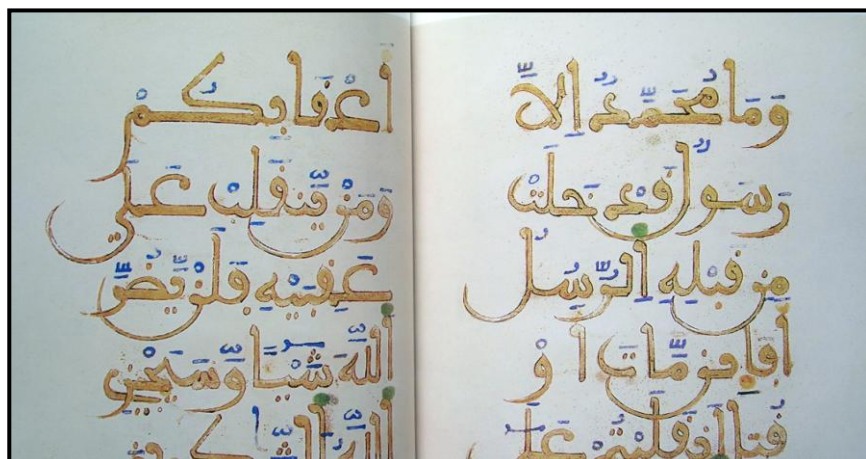 وَمَا مُحَمَّدٌ إِلَّا
رَسُولٌ قَدْ خَلَتْ
مِن قَبْلِهِ الرُّسُلُ
أَفَإِيْن مَّاتَ أَوْ
قُتِلَ انقَلَبْتُمْ عَلَى
أَعْقَابِكُمْ
وَمَنْ يَّنقَلِبْ عَلَى
عَقِبَيْهِ فَلَنْ يَّضُرَّ
اللَّهَ شَيْئًا وَسَيَجْزِي
اللَّهُ الشَّاكِرِينَ